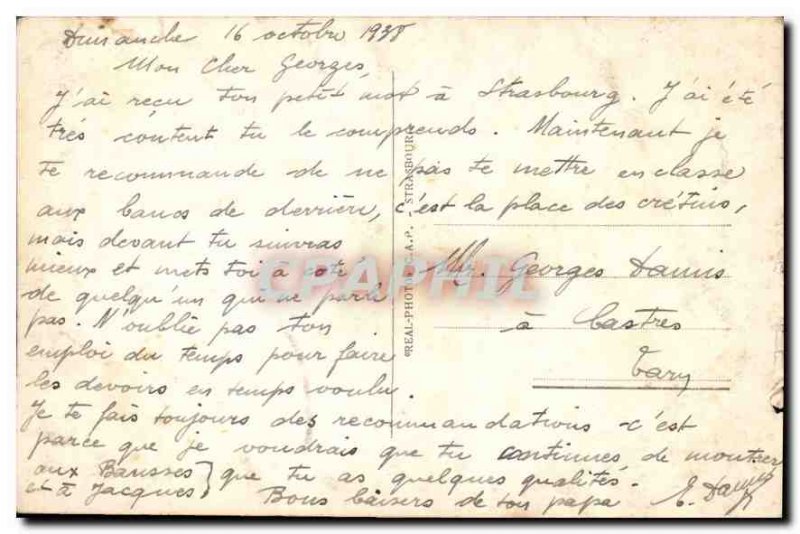 Dimanche 16 octobre 1938
Mon Cher Georges,
J'ai reçu ton petit mot à Strasbourg. J'ai été
très content tu le comprends. Maintenant je
te recommande de ne pas te mettre en classe
aux bancs de derrière, c'est la place des crétins,
mais devant tu suivras
mieux et mets toi à côté
de quelqu'un qui ne parle
pas. N'oublie pas ton
emploi du temps pour faire
les devoirs en temps voulu.
Je te fais toujours des recommandations c'est
parce que je voudrais que tu continues de montrer
aux Bausses } que tu as quelques qualités.
et à Jacques } Bons baisers de ton papa E.
Mr. Georges
à Castres
Tarn
REAL-PHOTO C.A.P. - STRASBOURG
CPAPHIL